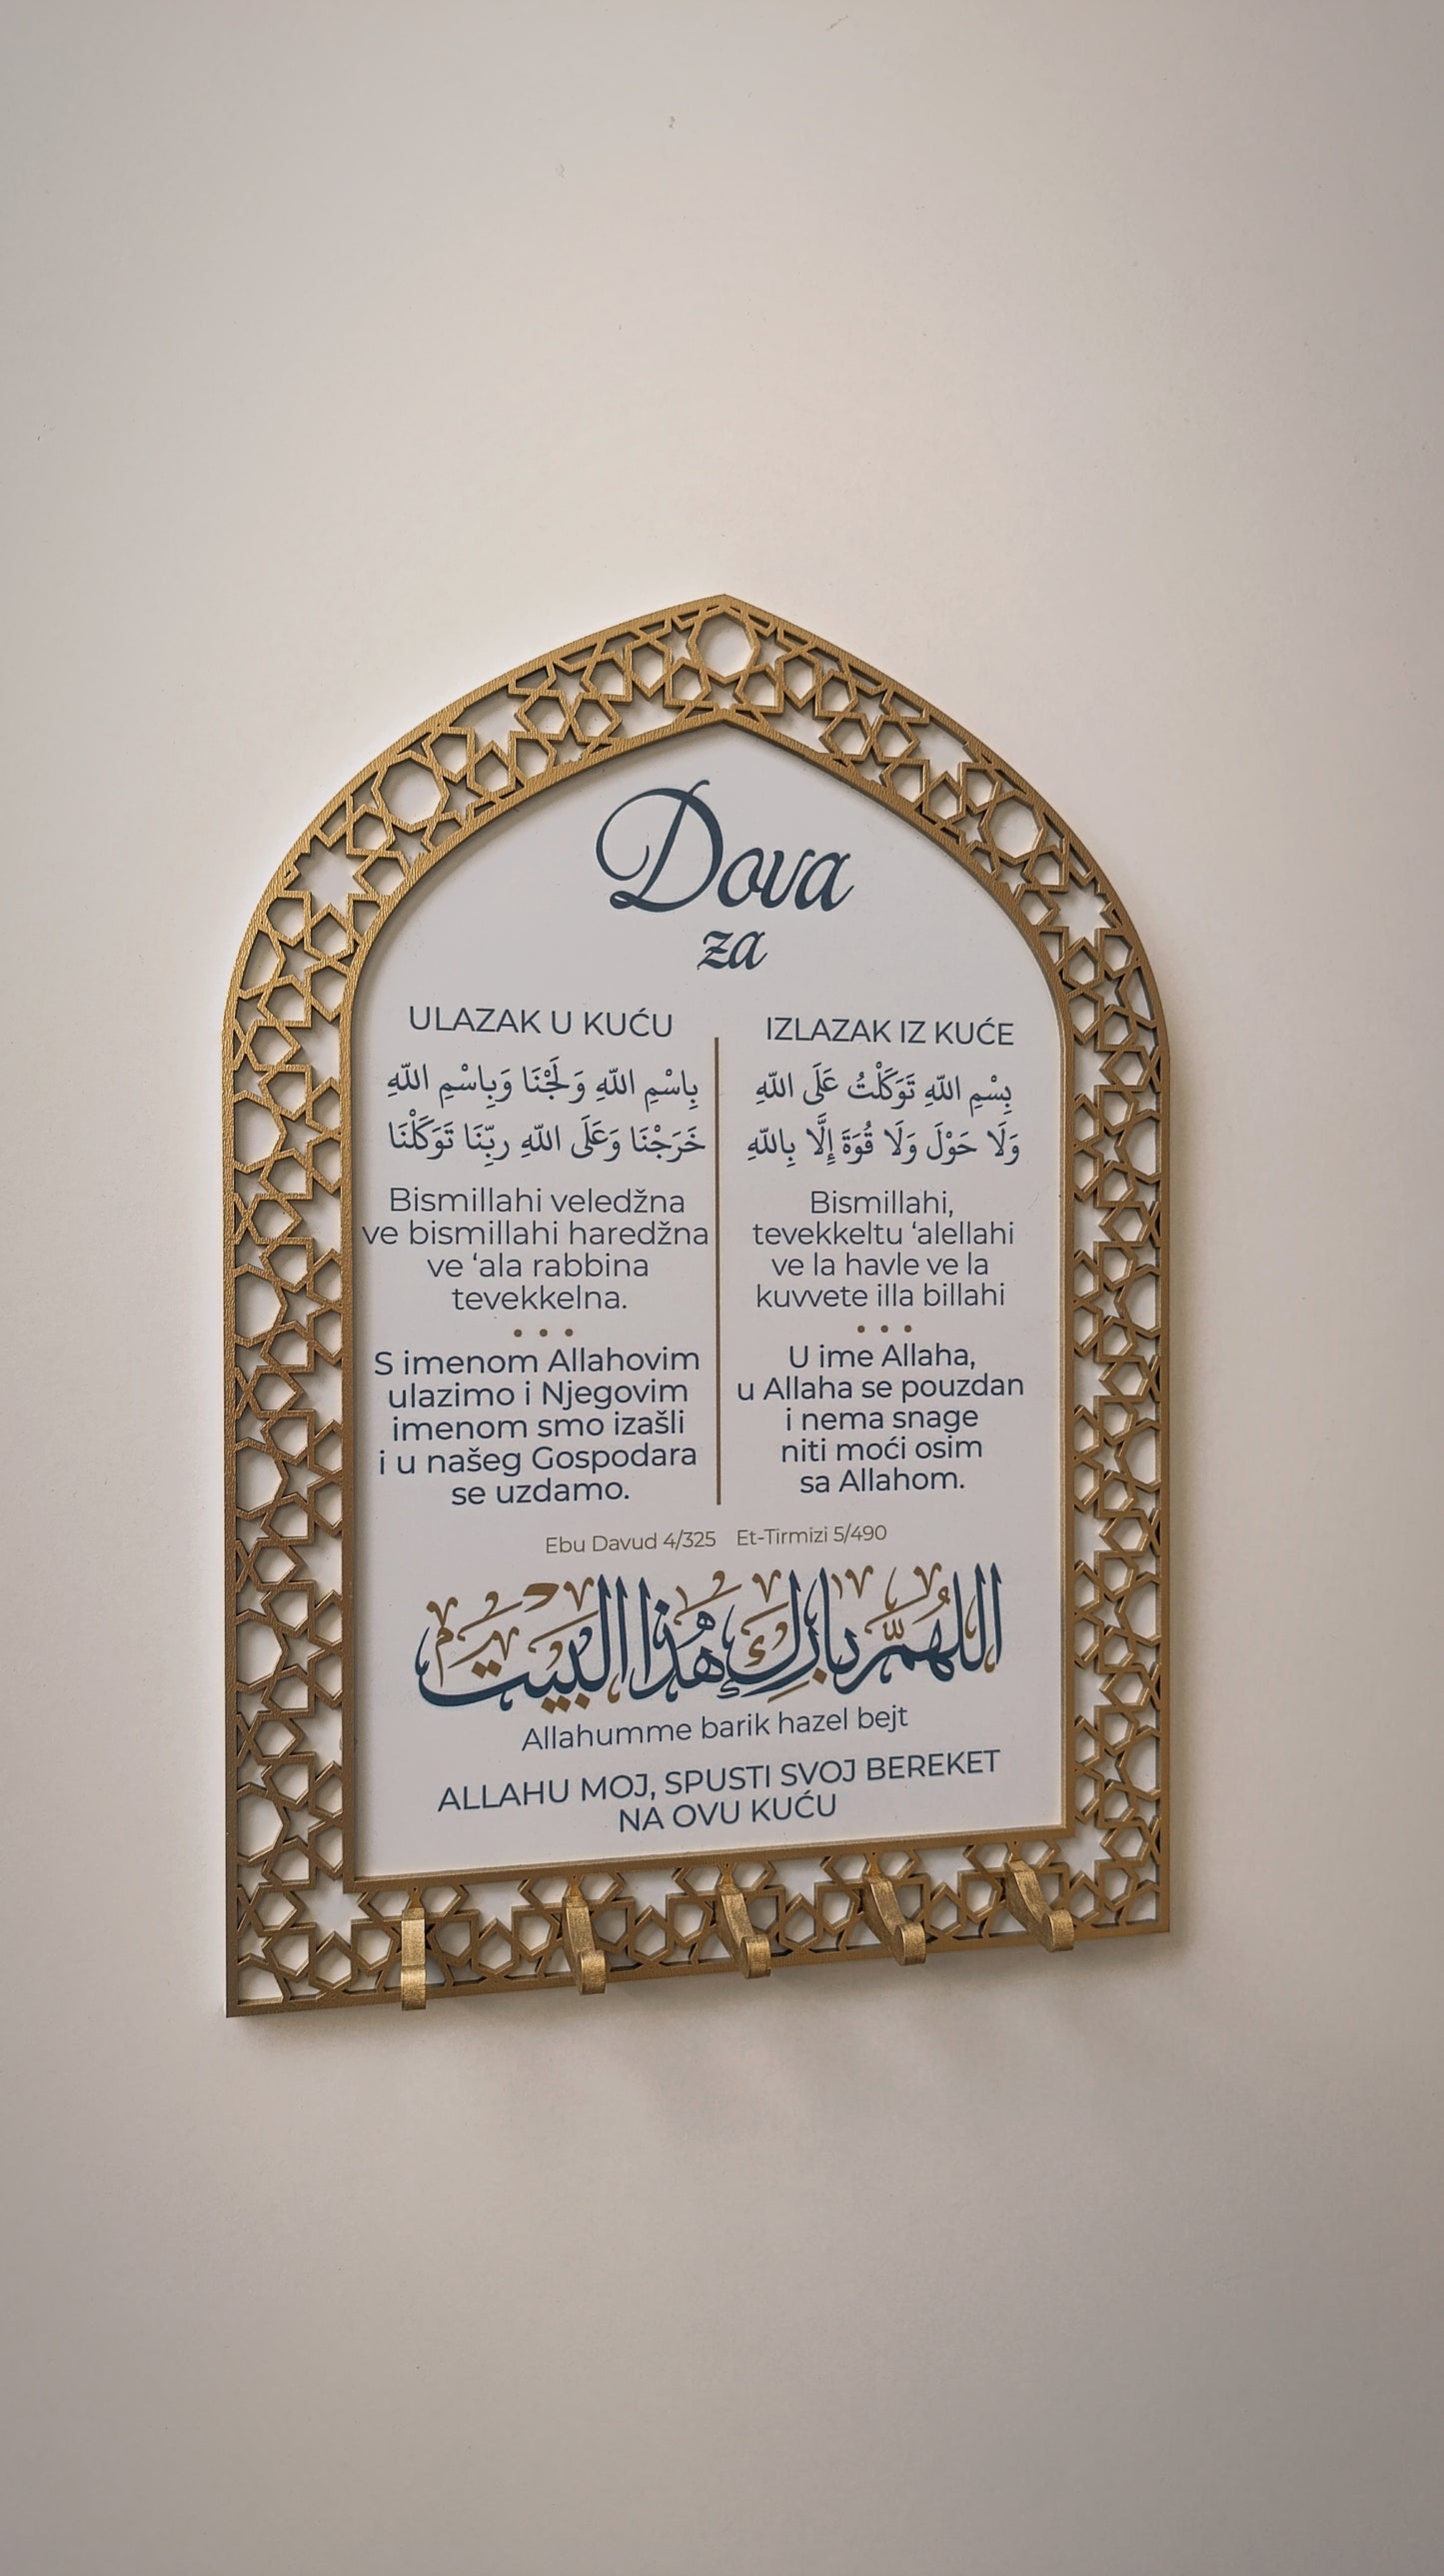 Dova
za
ULAZAK U KUĆU
بِاسْمِ اللّٰهِ وَلَجْنَا وَبِاسْمِ اللّٰهِ
خَرَجْنَا وَعَلَى اللّٰهِ رَبِّنَا تَوَكَّلْنَا
Bismillahi veledžna
ve bismillahi haredžna
ve ‘ala rabbina
tevekkelna.
S imenom Allahovim
ulazimo i Njegovim
imenom smo izašli
i u našeg Gospodara
se uzdamo.
IZLAZAK IZ KUĆE
بِسْمِ اللّٰهِ تَوَكَّلْتُ عَلَى اللّٰهِ
وَلَا حَوْلَ وَلَا قُوَّةَ إِلَّا بِاللّٰهِ
Bismillahi,
tevekkeltu ‘alellahi
ve la havle ve la
kuvvete illa billahi
U ime Allaha,
u Allaha se pouzdan
i nema snage
niti moći osim
sa Allahom.
Ebu Davud 4/325 Et-Tirmizi 5/490
اللهُمَّ بارِك هٰذا البيت
Allahumme barik hazel bejt
ALLAHU MOJ, SPUSTI SVOJ BEREKET
NA OVU KUĆU